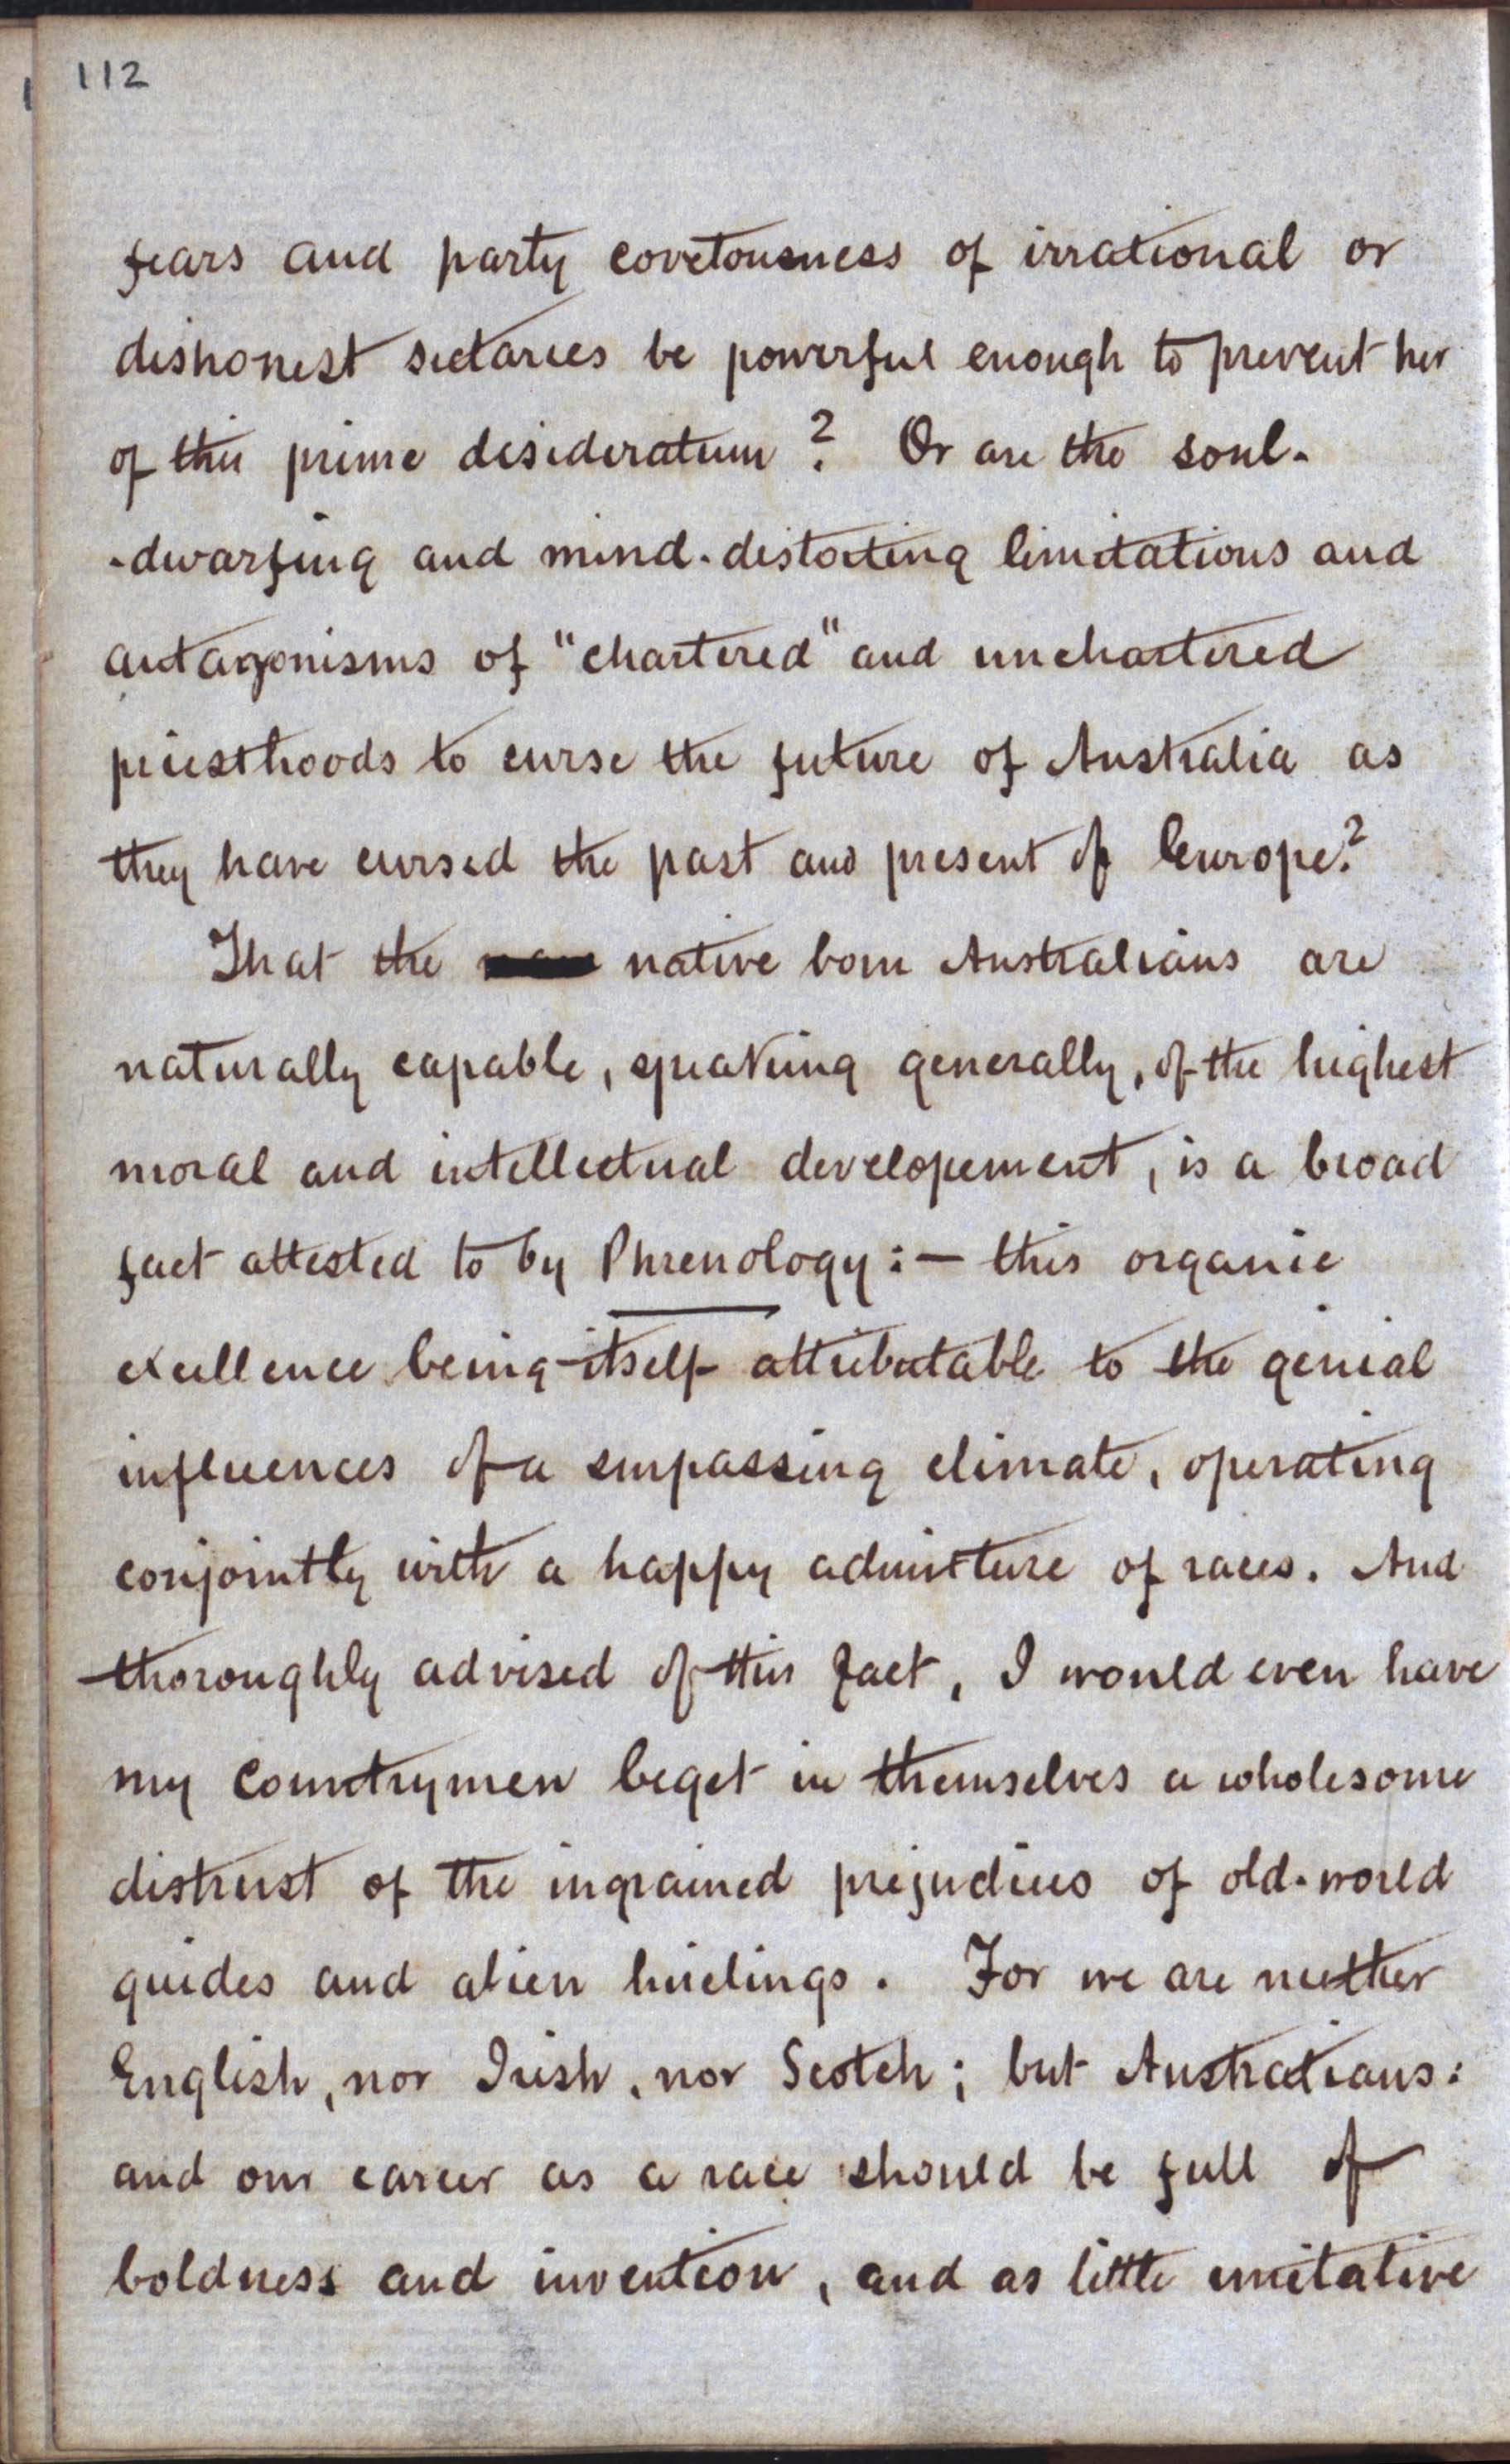 112
fears and party covetousness of irrational or
dishonest sectaries be powerful enough to prevent her
of this prime desideratum? Or are the soul-
-dwarfing and mind-distorting limitations and
antagonisms of "chartered" and unchartered
priesthoods to curse the future of Australia as
they have cursed the past and present of Europe?
That the native born Australians are
naturally capable, speaking generally, of the highest
moral and intellectual developement, is a broad
fact attested to by Phrenology:— this organic
excellence being itself attributable to the genial
influences of a surpassing climate, operating
conjointly with a happy admixture of races. And
thoroughly advised of this fact, I would even have
my countrymen beget in themselves a wholesome
distrust of the ingrained prejudices of old-world
guides and alien hirelings. For we are neither
English, nor Irish, nor Scotch; but Australians:
and our career as a race should be full of
boldness and invention, and as little imitative